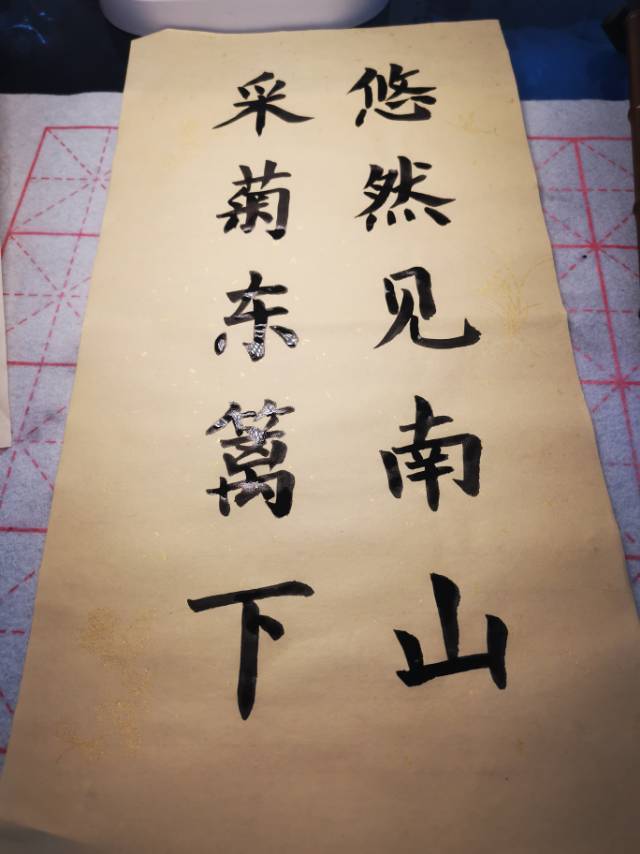 采菊东篱下
悠然见南山